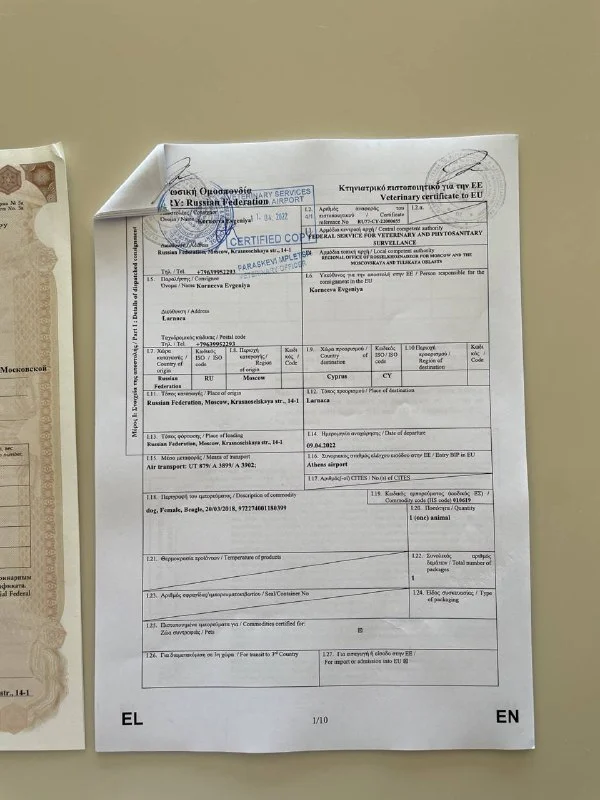 Κτηνιατρικό πιστοποιητικό για την ΕΕ
Veterinary certificate to EU
Russian Federation
VETERINARY SERVICES
CERTIFIED COPY
Korneeva Evgeniya
Russian Federation, Moscow, Krasnoselskaya str., 14-1
Τηλ. / Tel. +79639952293
I.2. Αριθμός αναφοράς του πιστοποιητικού / Certificate reference No
I.2.a.
Αρμόδια κεντρική αρχή / Central competent authority
FEDERAL SERVICE FOR VETERINARY AND PHYTOSANITARY SURVEILLANCE
Αρμόδια τοπική αρχή / Local competent authority
Μέρος I: Στοιχεία της αποστολής / Part I : Details of dispatched consignment
I.5. Παραλήπτης / Consignee
Όνομα / Name Korneeva Evgeniya
Διεύθυνση / Address
Larnaca
Ταχυδρομικός κώδικας / Postal code
Τηλ. / Tel. +79639952293
I.6. Υπεύθυνος για την αποστολή στην ΕΕ / Person responsible for the consignment in the EU
Korneeva Evgeniya
I.7. Χώρα καταγωγής / Country of origin
Κωδικός ISO / ISO code
I.8. Περιοχή καταγωγής / Region of origin
Κωδικός / Code
I.9. Χώρα προορισμού / Country of destination
Κωδικός ISO / ISO code
I.10 Περιοχή προορισμού / Region of destination
Κωδικός / Code
Russian Federation
RU
Moscow
Cyprus
CY
I.11. Τόπος καταγωγής / Place of origin
Russian Federation, Moscow, Krasnoselskaya str., 14-1
I.12. Τόπος προορισμού / Place of destination
Larnaca
I.13. Τόπος φόρτωσης / Place of loading
Russian Federation, Moscow, Krasnoselskaya str., 14-1
I.14. Ημερομηνία αναχώρησης / Date of departure
09.04.2022
I.15. Μέσο μεταφοράς / Means of transport
Air transport: UT 879/ A 3899/ A 3902;
I.16. Συνοριακός σταθμός ελέγχου εισόδου στην ΕΕ / Entry BIP in EU
Athens airport
I.17. Αριθμός(-οί) CITES / No.(s) of CITES
I.18. Περιγραφή του εμπορεύματος / Description of commodity
dog, Female, Beagle, 20/03/2018, 972274001180399
I.19. Κωδικός εμπορεύματος (κωδικός ΕΣ) / Commodity code (HS code) 010619
I.20. Ποσότητα / Quantity
1 (one) animal
I.21. Θερμοκρασία προϊόντων / Temperature of products
I.22. Συνολικός αριθμός δεμάτων / Total number of packages
1
I.23. Αριθμός σφραγίδας/εμπορευματοκιβωτίου / Seal/Container No
I.24. Είδος συσκευασίας / Type of packaging
I.25. Πιστοποιημένα εμπορεύματα για: / Commodities certified for:
Ζώα συντροφιάς / Pets ☒
I.26. Για διαμετακόμιση σε 3η χώρα / For transit to 3rd Country
I.27. Για εισαγωγή ή είσοδο στην ΕΕ / For import or admission into EU ☒
EL
1/10
EN
Московской
str., 14-1